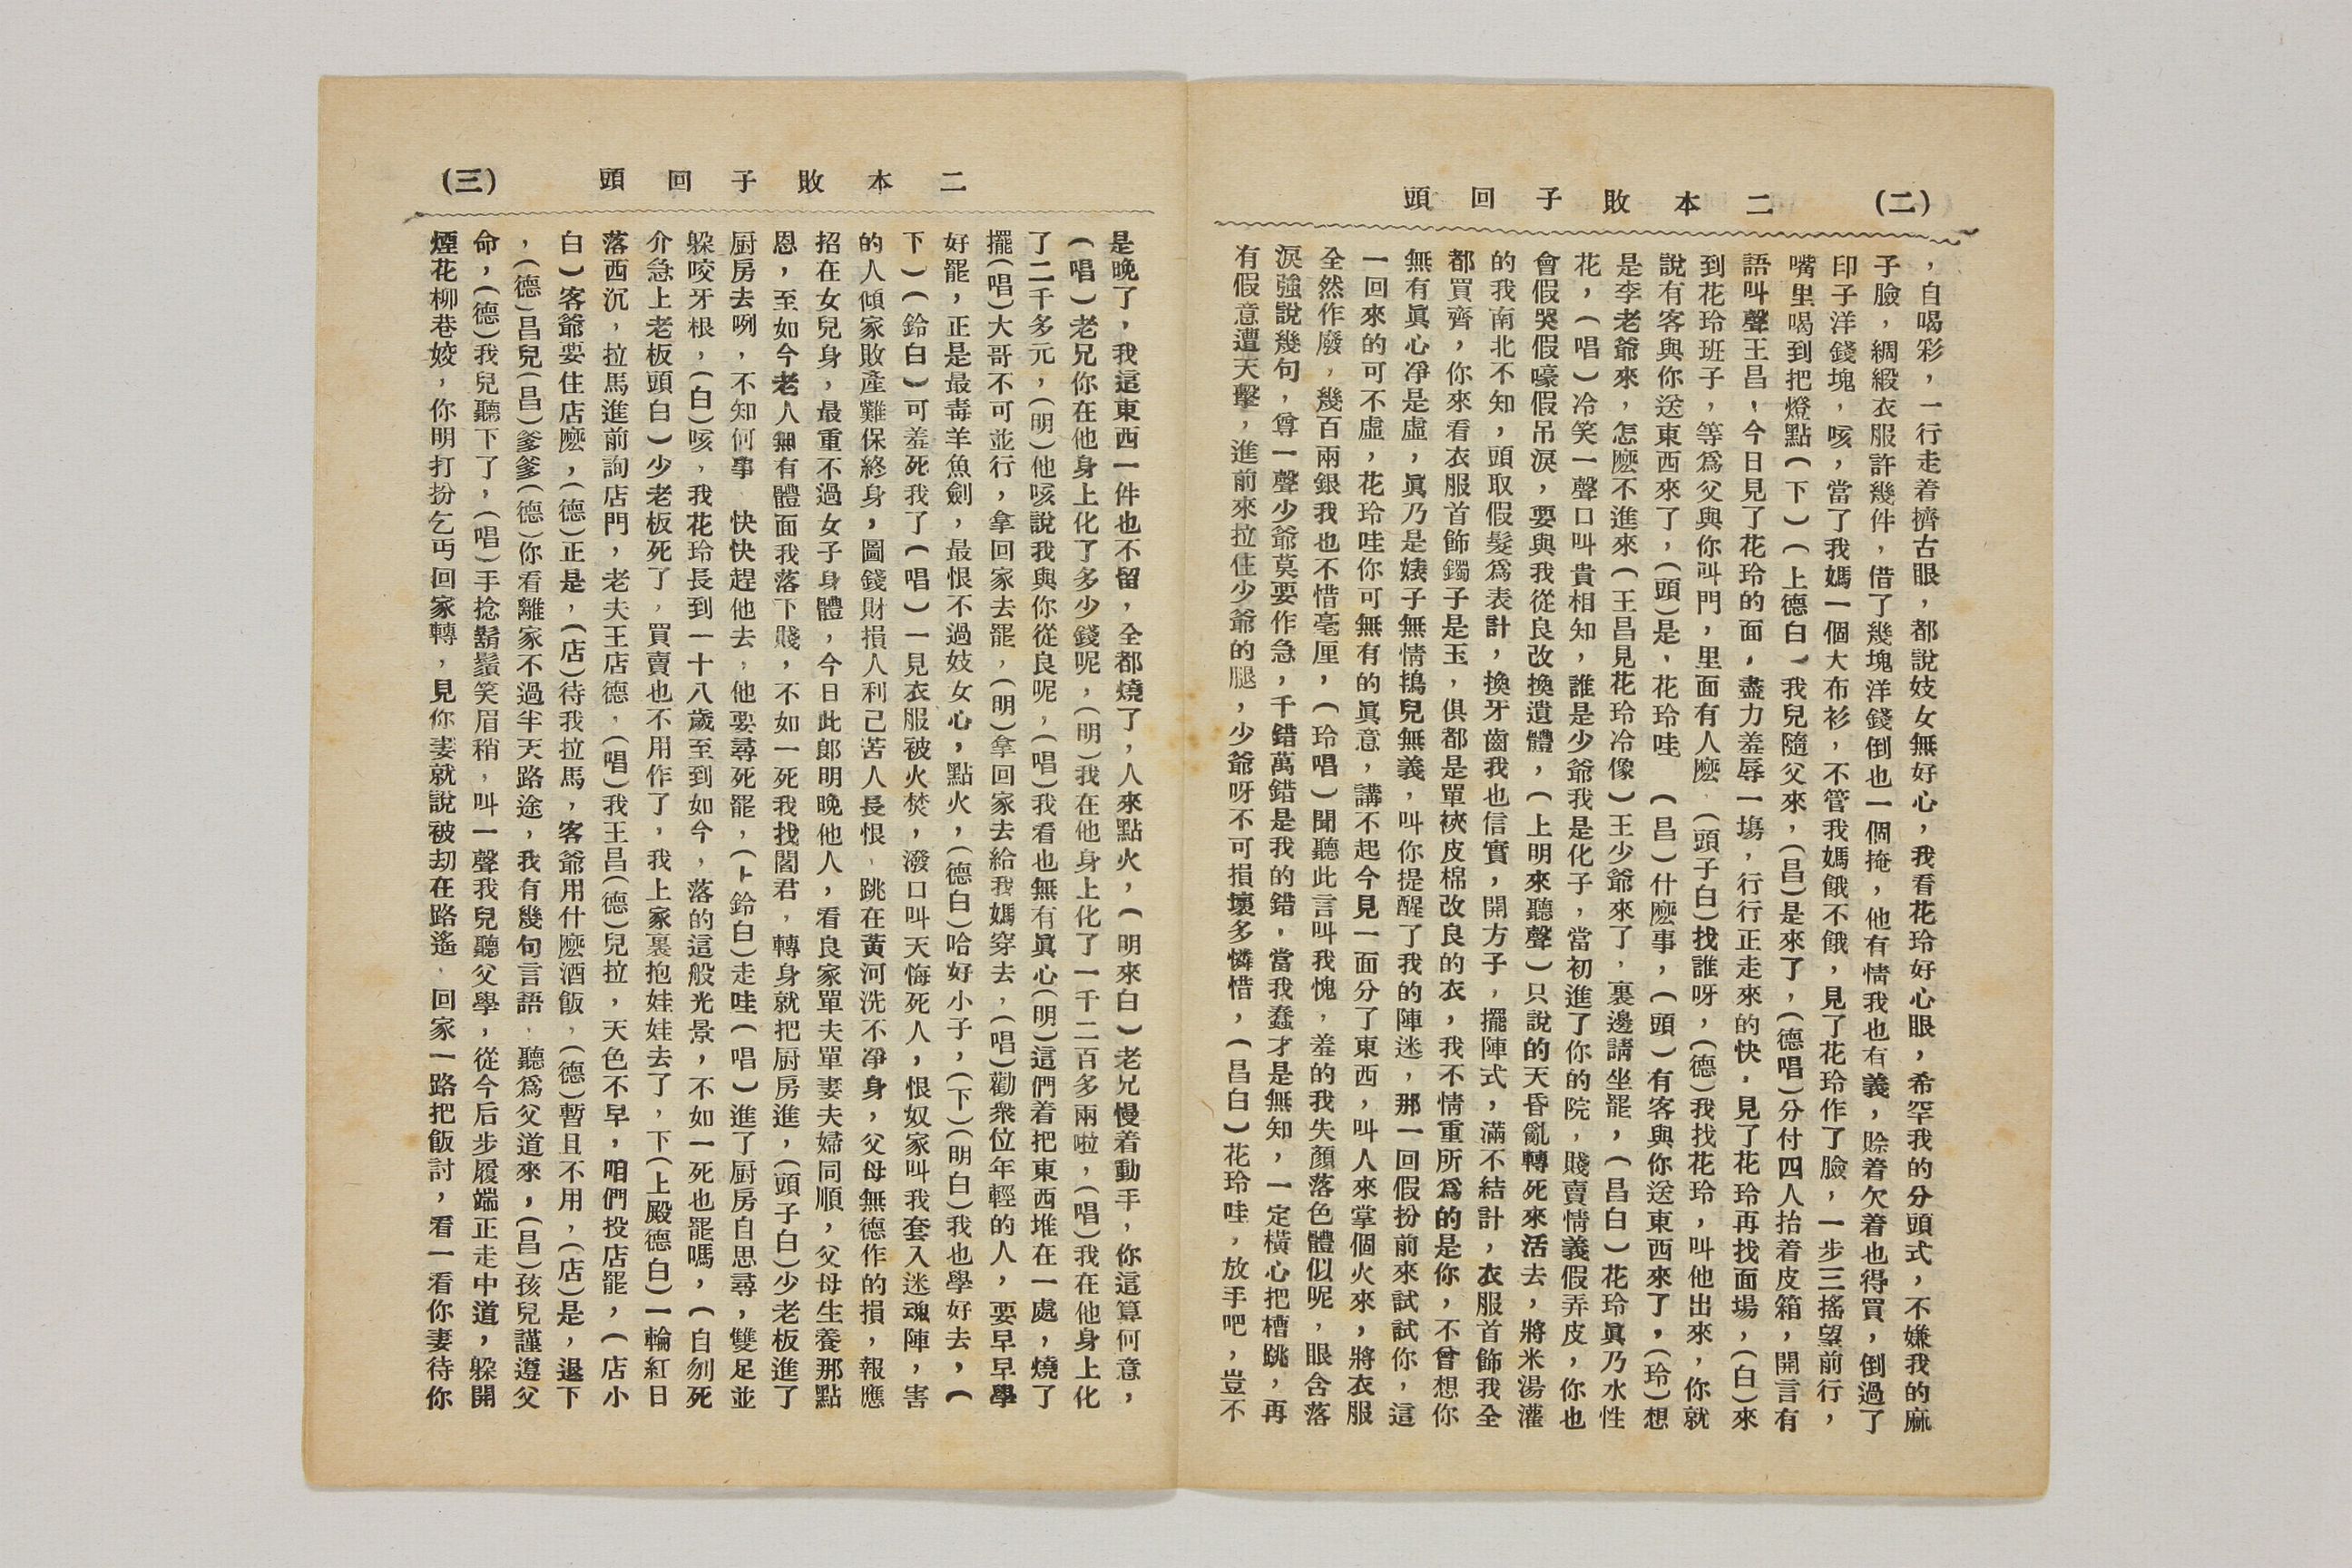 (二)
二本敗子回頭
，自喝彩，一行走着擠古眼，都說妓女無好心，我看花玲好心眼，希罕我的分頭式，不嫌我的麻
子臉，綢緞衣服許幾件，借了幾塊洋錢倒也一個掩，他有情我也有義，賒着欠着也得買，倒過了
印子洋錢塊，咳，當了我媽一個大布衫，不管我媽餓不餓，見了花玲作了臉，一步三搖望前行，
嘴里喝到把燈點(下)(上德白、我兒隨父來，(昌)是來了，(德唱)分付四人抬着皮箱，開言有
語叫聲王昌，今日見了花玲的面，盡力羞辱一塲，行行正走來的快，見了花玲再找面場，(白)來
到花玲班子，等爲父與你叫門，里面有人麽，(頭子白)找誰呀，(德)我找花玲，叫他出來，你就
說有客與你送東西來了，(頭)是，花玲哇　(昌)什麽事，(頭)有客與你送東西來了，(玲)想
是李老爺來，怎麽不進來(王昌見花玲冷像)王少爺來了，裏邊請坐罷，(昌白)花玲眞乃水性
花，(唱)冷笑一聲口叫貴相知，誰是少爺我是化子，當初進了你的院，賤賣情義假弄皮，你也
會假哭假嚎假吊淚，要與我從良改換遺體，(上明來聽聲)只說的天昏亂轉死來活去，將米湯灌
的我南北不知，頭取假髮爲表計，換牙齒我也信實，開方子，擺陣式，滿不結計，衣服首飾我全
都買齊，你來看衣服首飾鐲子是玉，俱都是單裌皮棉改良的衣，我不情重所爲的是你，不曾想你
無有眞心凈是虛，眞乃是婊子無情鴇兒無義，叫你提醒了我的陣迷，那一回假扮前來試試你，這
一回來的可不虛，花玲哇你可無有的眞意，講不起今見一面分了東西，叫人來掌個火來，將衣服
全然作廢，幾百兩銀我也不惜毫厘，(玲唱)聞聽此言叫我愧，羞的我失顏落色體似呢，眼含落
淚強說幾句，尊一聲少爺莫要作急，千錯萬錯是我的錯，當我蠢才是無知，一定橫心把槽跳，再
有假意遭天擊，進前來拉住少爺的腿，少爺呀不可損壞多憐惜，(昌白)花玲哇，放手吧，豈不
(三)
二本敗子回頭
是晚了，我這東西一件也不留，全都燒了，人來點火，(明來白)老兄慢着動手，你這算何意，
(唱)老兄你在他身上化了多少錢呢，(明)我在他身上化了一千二百多兩啦，(唱)我在他身上化
了二千多元，(明)他咳說我與你從良呢，(唱)我看也無有眞心(明)這們着把東西堆在一處，燒了
擺(唱)大哥不可並行，拿回家去罷，(明)拿回家去給我媽穿去，(唱)勸衆位年輕的人，要早早學
好罷，正是最毒羊魚劍，最恨不過妓女心，點火，(德白)哈好小子，(下)(明白)我也學好去，(
下)(鈴白)可羞死我了(唱)一見衣服被火焚，潑口叫天悔死人，恨奴家叫我套入迷魂陣，害
的人傾家敗產難保終身，圖錢財損人利己苦人長恨，跳在黃河洗不凈身，父母無德作的損，報應
招在女兒身，最重不過女子身體，今日此郎明晚他人，看良家單夫單妻夫婦同順，父母生養那點
恩，至如今老人無有體面我落下賤，不如一死我找閻君，轉身就把厨房進，(頭子白)少老板進了
厨房去咧，不知何事　快快趕他去，他要尋死罷，(卜鈴白)走哇(唱)進了厨房自思尋，雙足並
躲咬牙根，(白)咳，我花玲長到一十八歲至到如今，落的這般光景，不如一死也罷嗎，(自刎死
介急上老板頭白)少老板死了，買賣也不用作了，我上家裏抱娃娃去了，下(上殿德白)一輪紅日
落西沉，拉馬進前詢店門，老夫王店德，(唱)我王昌(德)兒拉，天色不早，咱們投店罷，(店小
白)客爺要住店麽，(德)正是，(店)待我拉馬，客爺用什麽酒飯，(德)暫且不用，(店)是，退下
，(德)昌兒(昌)爹爹(德)你看離家不過半天路途，我有幾句言語，聽爲父道來，(昌)孩兒謹遵父
命，(德)我兒聽下了，(唱)手捻鬍鬚笑眉稍，叫一聲我兒聽父學，從今后步履端正走中道，躲開
煙花柳巷姣，你明打扮乞丐回家轉，見你妻就說被劫在路遙，回家一路把飯討，看一看你妻待你